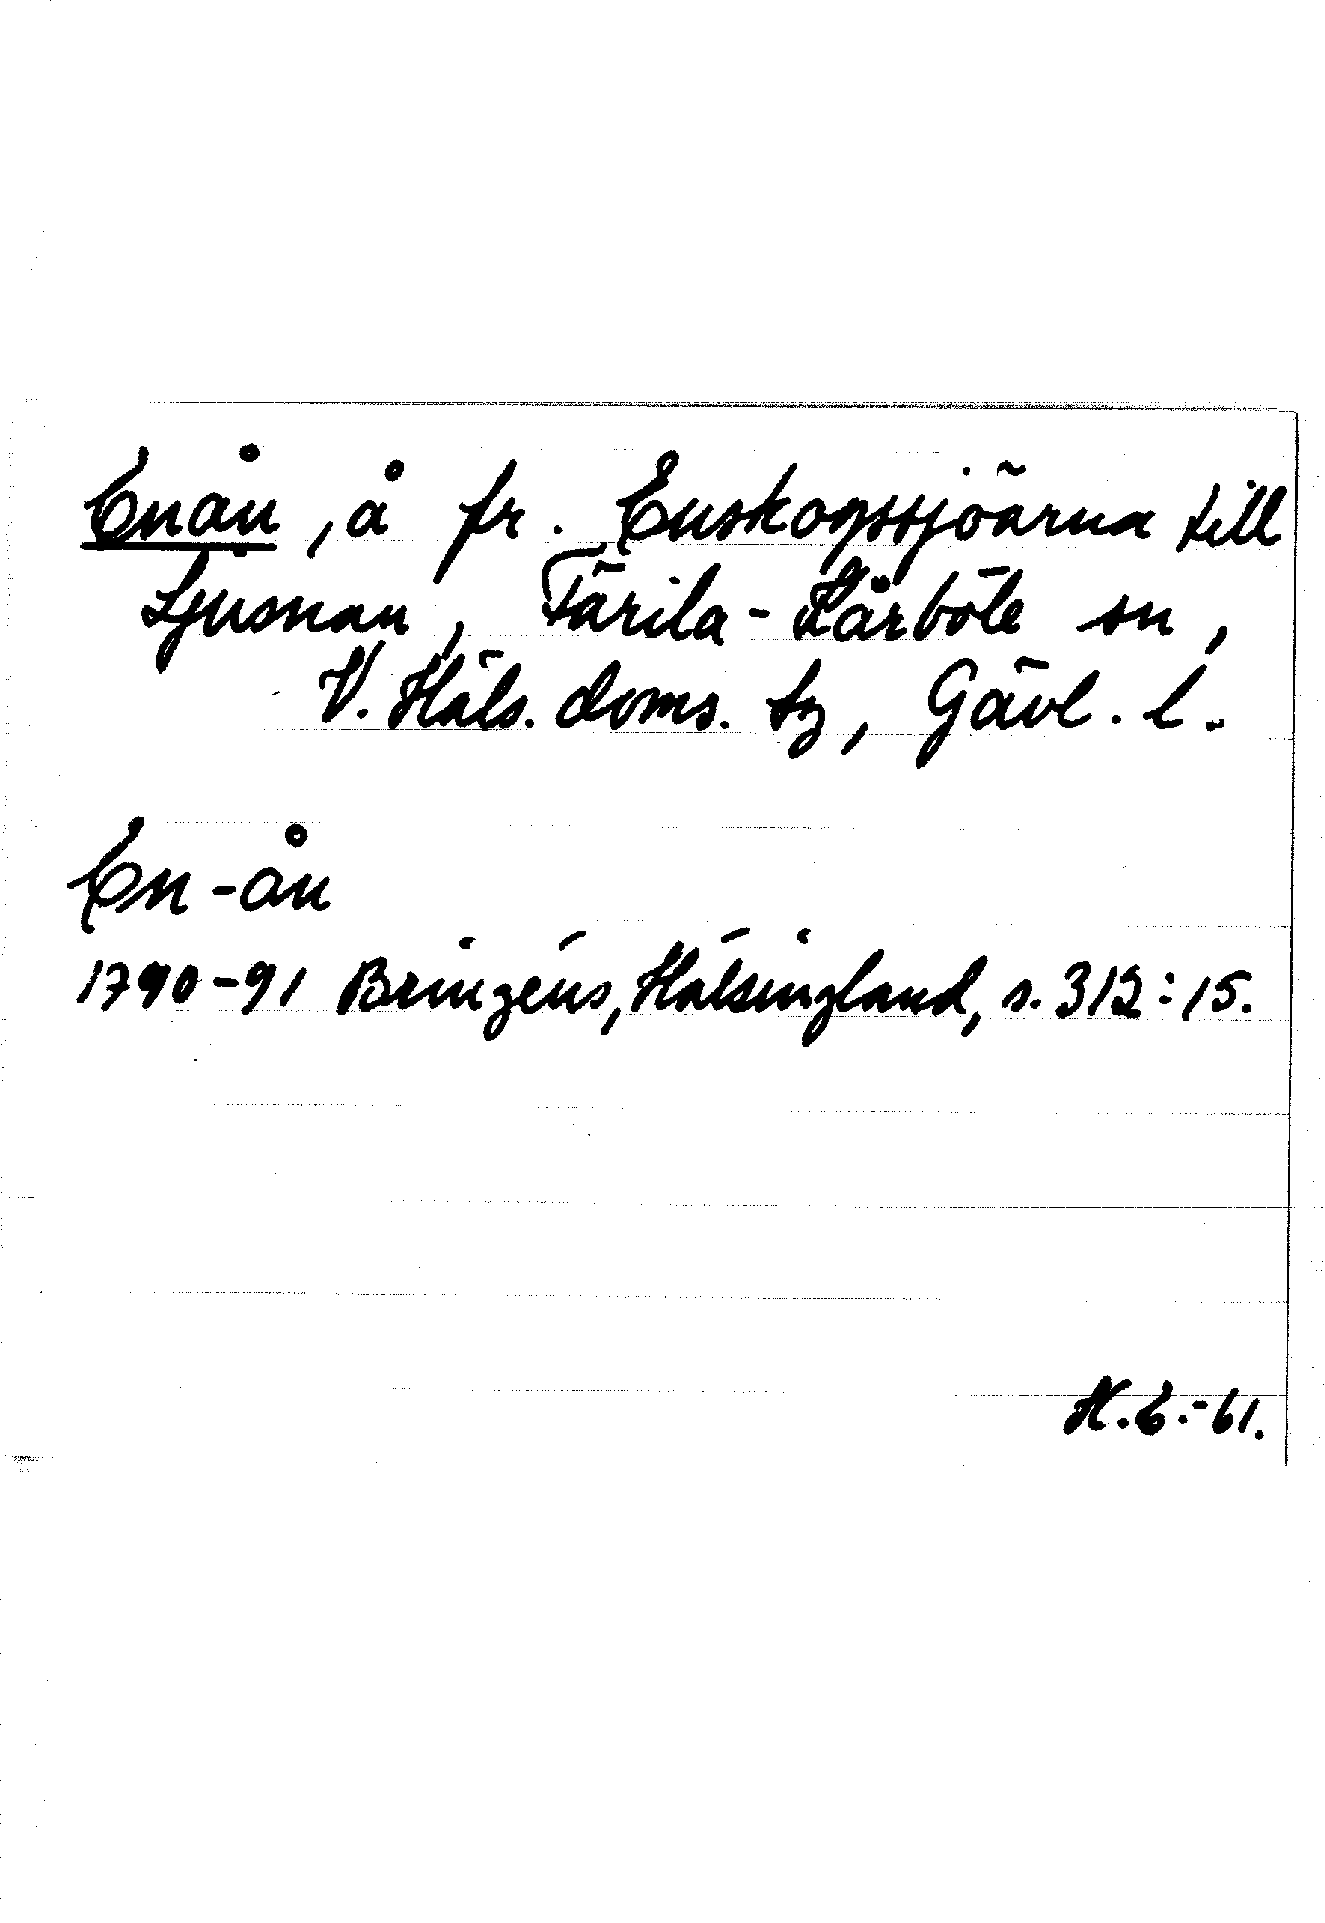 Enån, å fr. Enskogssjöarna till
Ljusnan, Färila-Kårböle sn,
V. Häls. doms. tg, Gävl. l.
En-ån
1790-91 Bringéus, Hälsingland, s. 312:15.
H.E.-61.